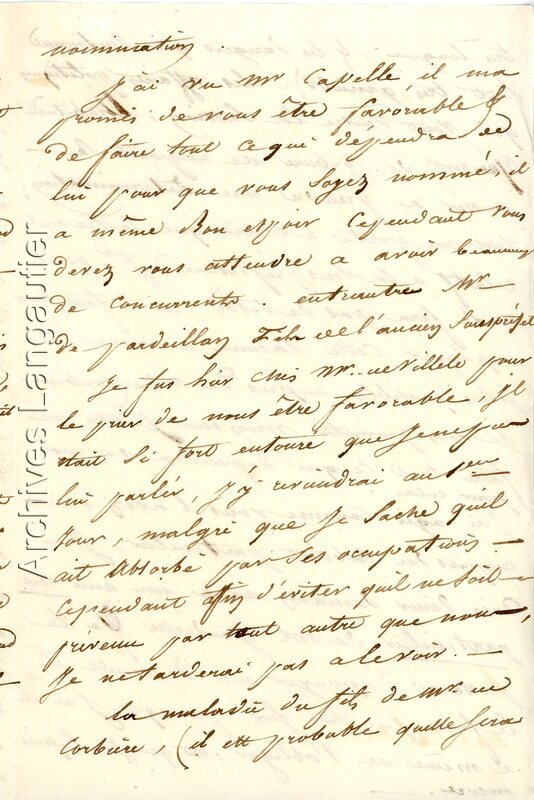 nomination
J'ai vu mr Capelle il ma
promis de vous être favorable &
de faire tout ce qui dépendra de
lui pour que vous soyez nommé, il
a même Bon espoir Cependant vous
devez vous attendre a avoir beaucoup
de concurrents. entrautre Mr
de pardeillan fils de l'ancien Sousprefet
Je fus hier chés mr. de Villele pour
le prier de nous être favorable, Il
était Si fort entouré que Je ne pu
lui parler, J'y reviendrai au 1er
Jour, malgré que Je Sache qu'il
ait Absorbé par Ses occupations
Cependant afin d'eviter quil ne Soit
prévenu par tout autre que nous,
Je ne tarderai pas a le voir. —
la maladie du fils de mr. de
Corbière, (il est probable quelle Sera
Archives Langautier